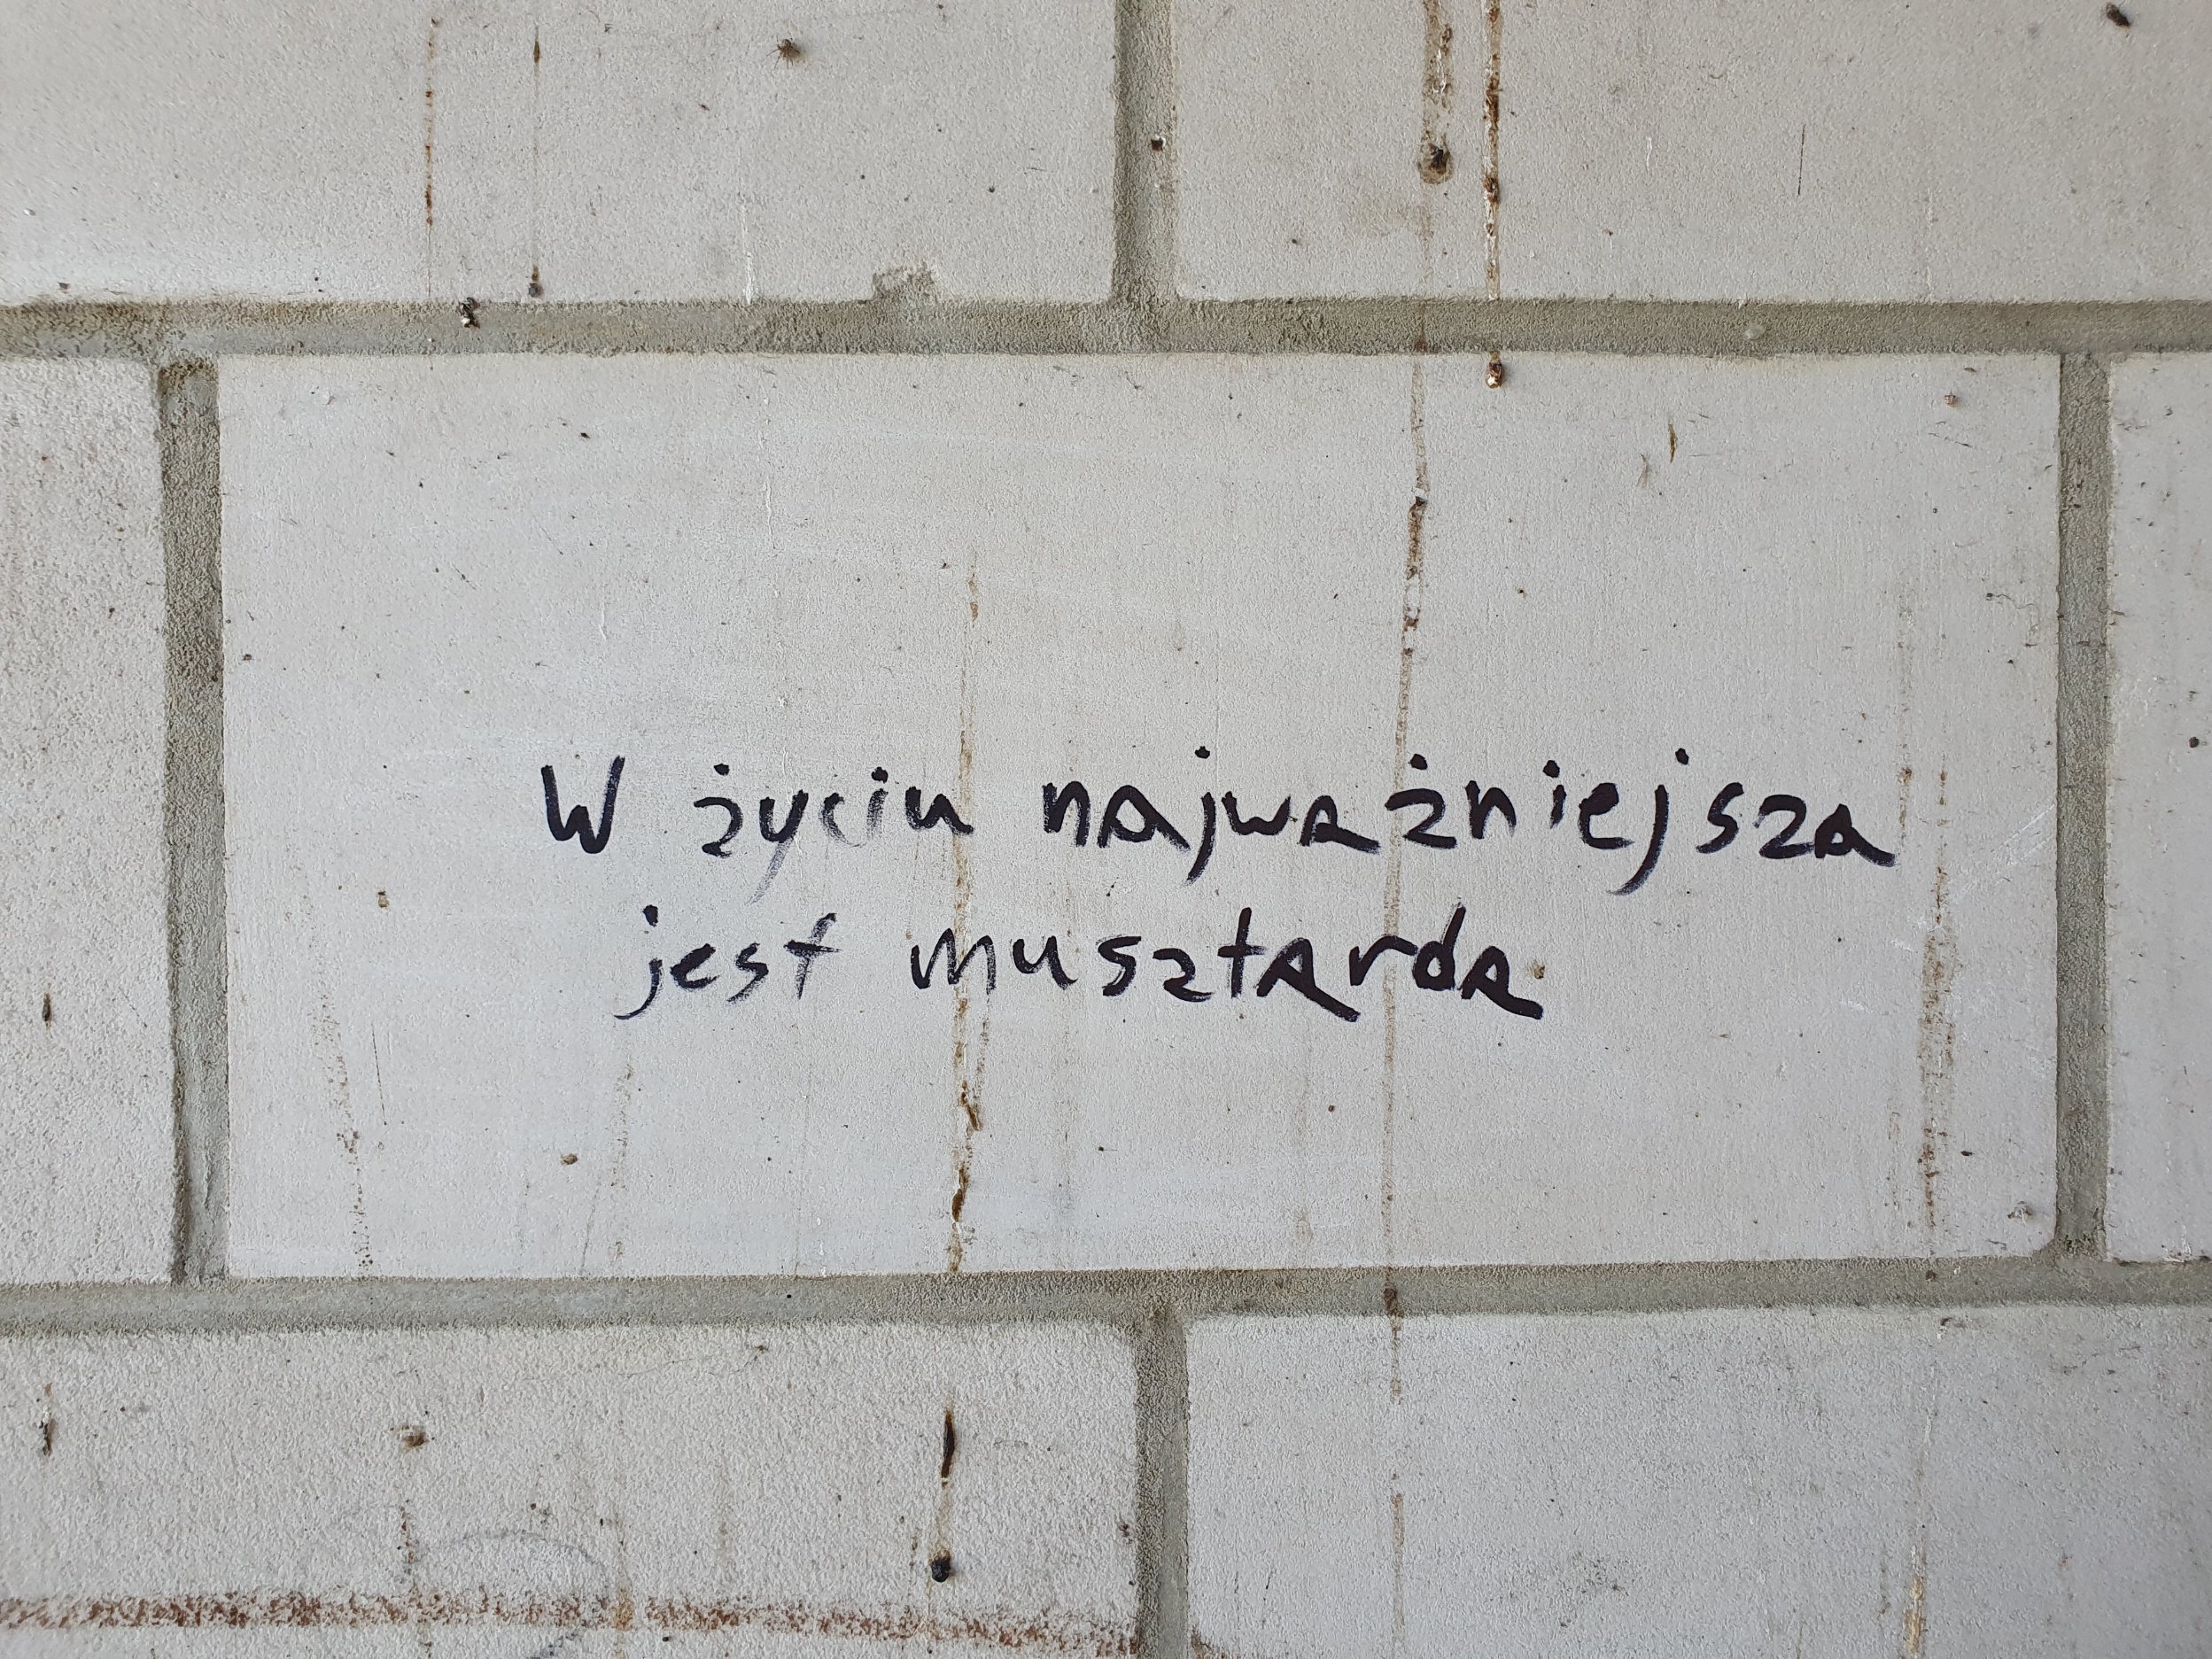 W życiu najważniejsza
jest musztarda